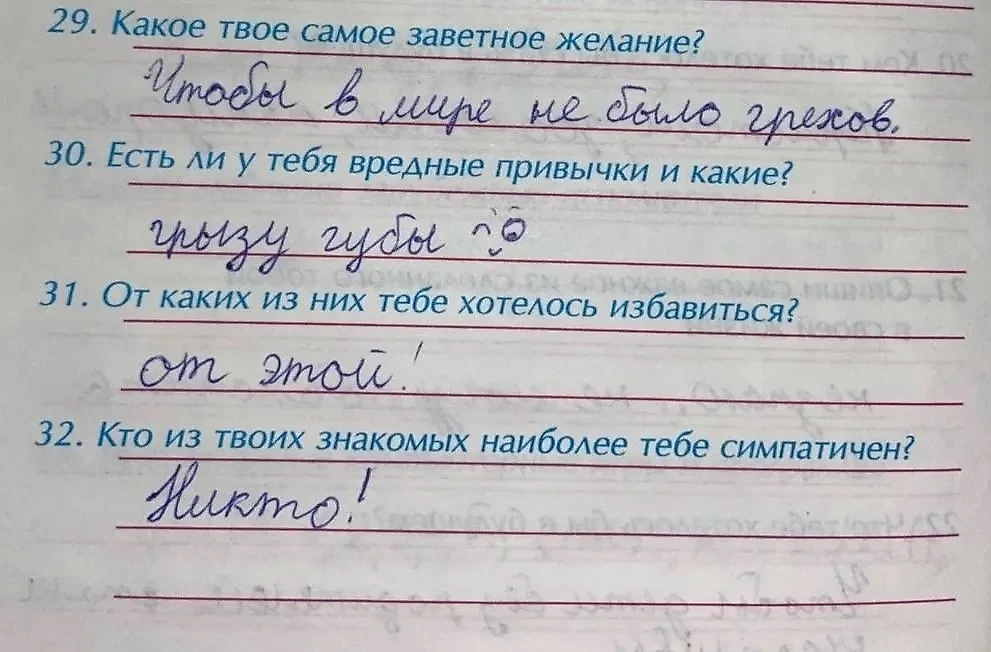 29. Какое твое самое заветное желание?
Чтобы в мире не было грехов.
30. Есть ли у тебя вредные привычки и какие?
грызу губы
31. От каких из них тебе хотелось избавиться?
от этой!
32. Кто из твоих знакомых наиболее тебе симпатичен?
Никто!